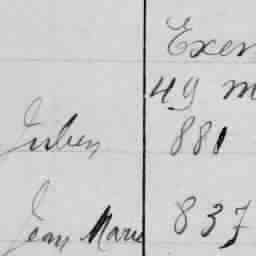 Exem
49 m
Julien 881
Jean Marie 837